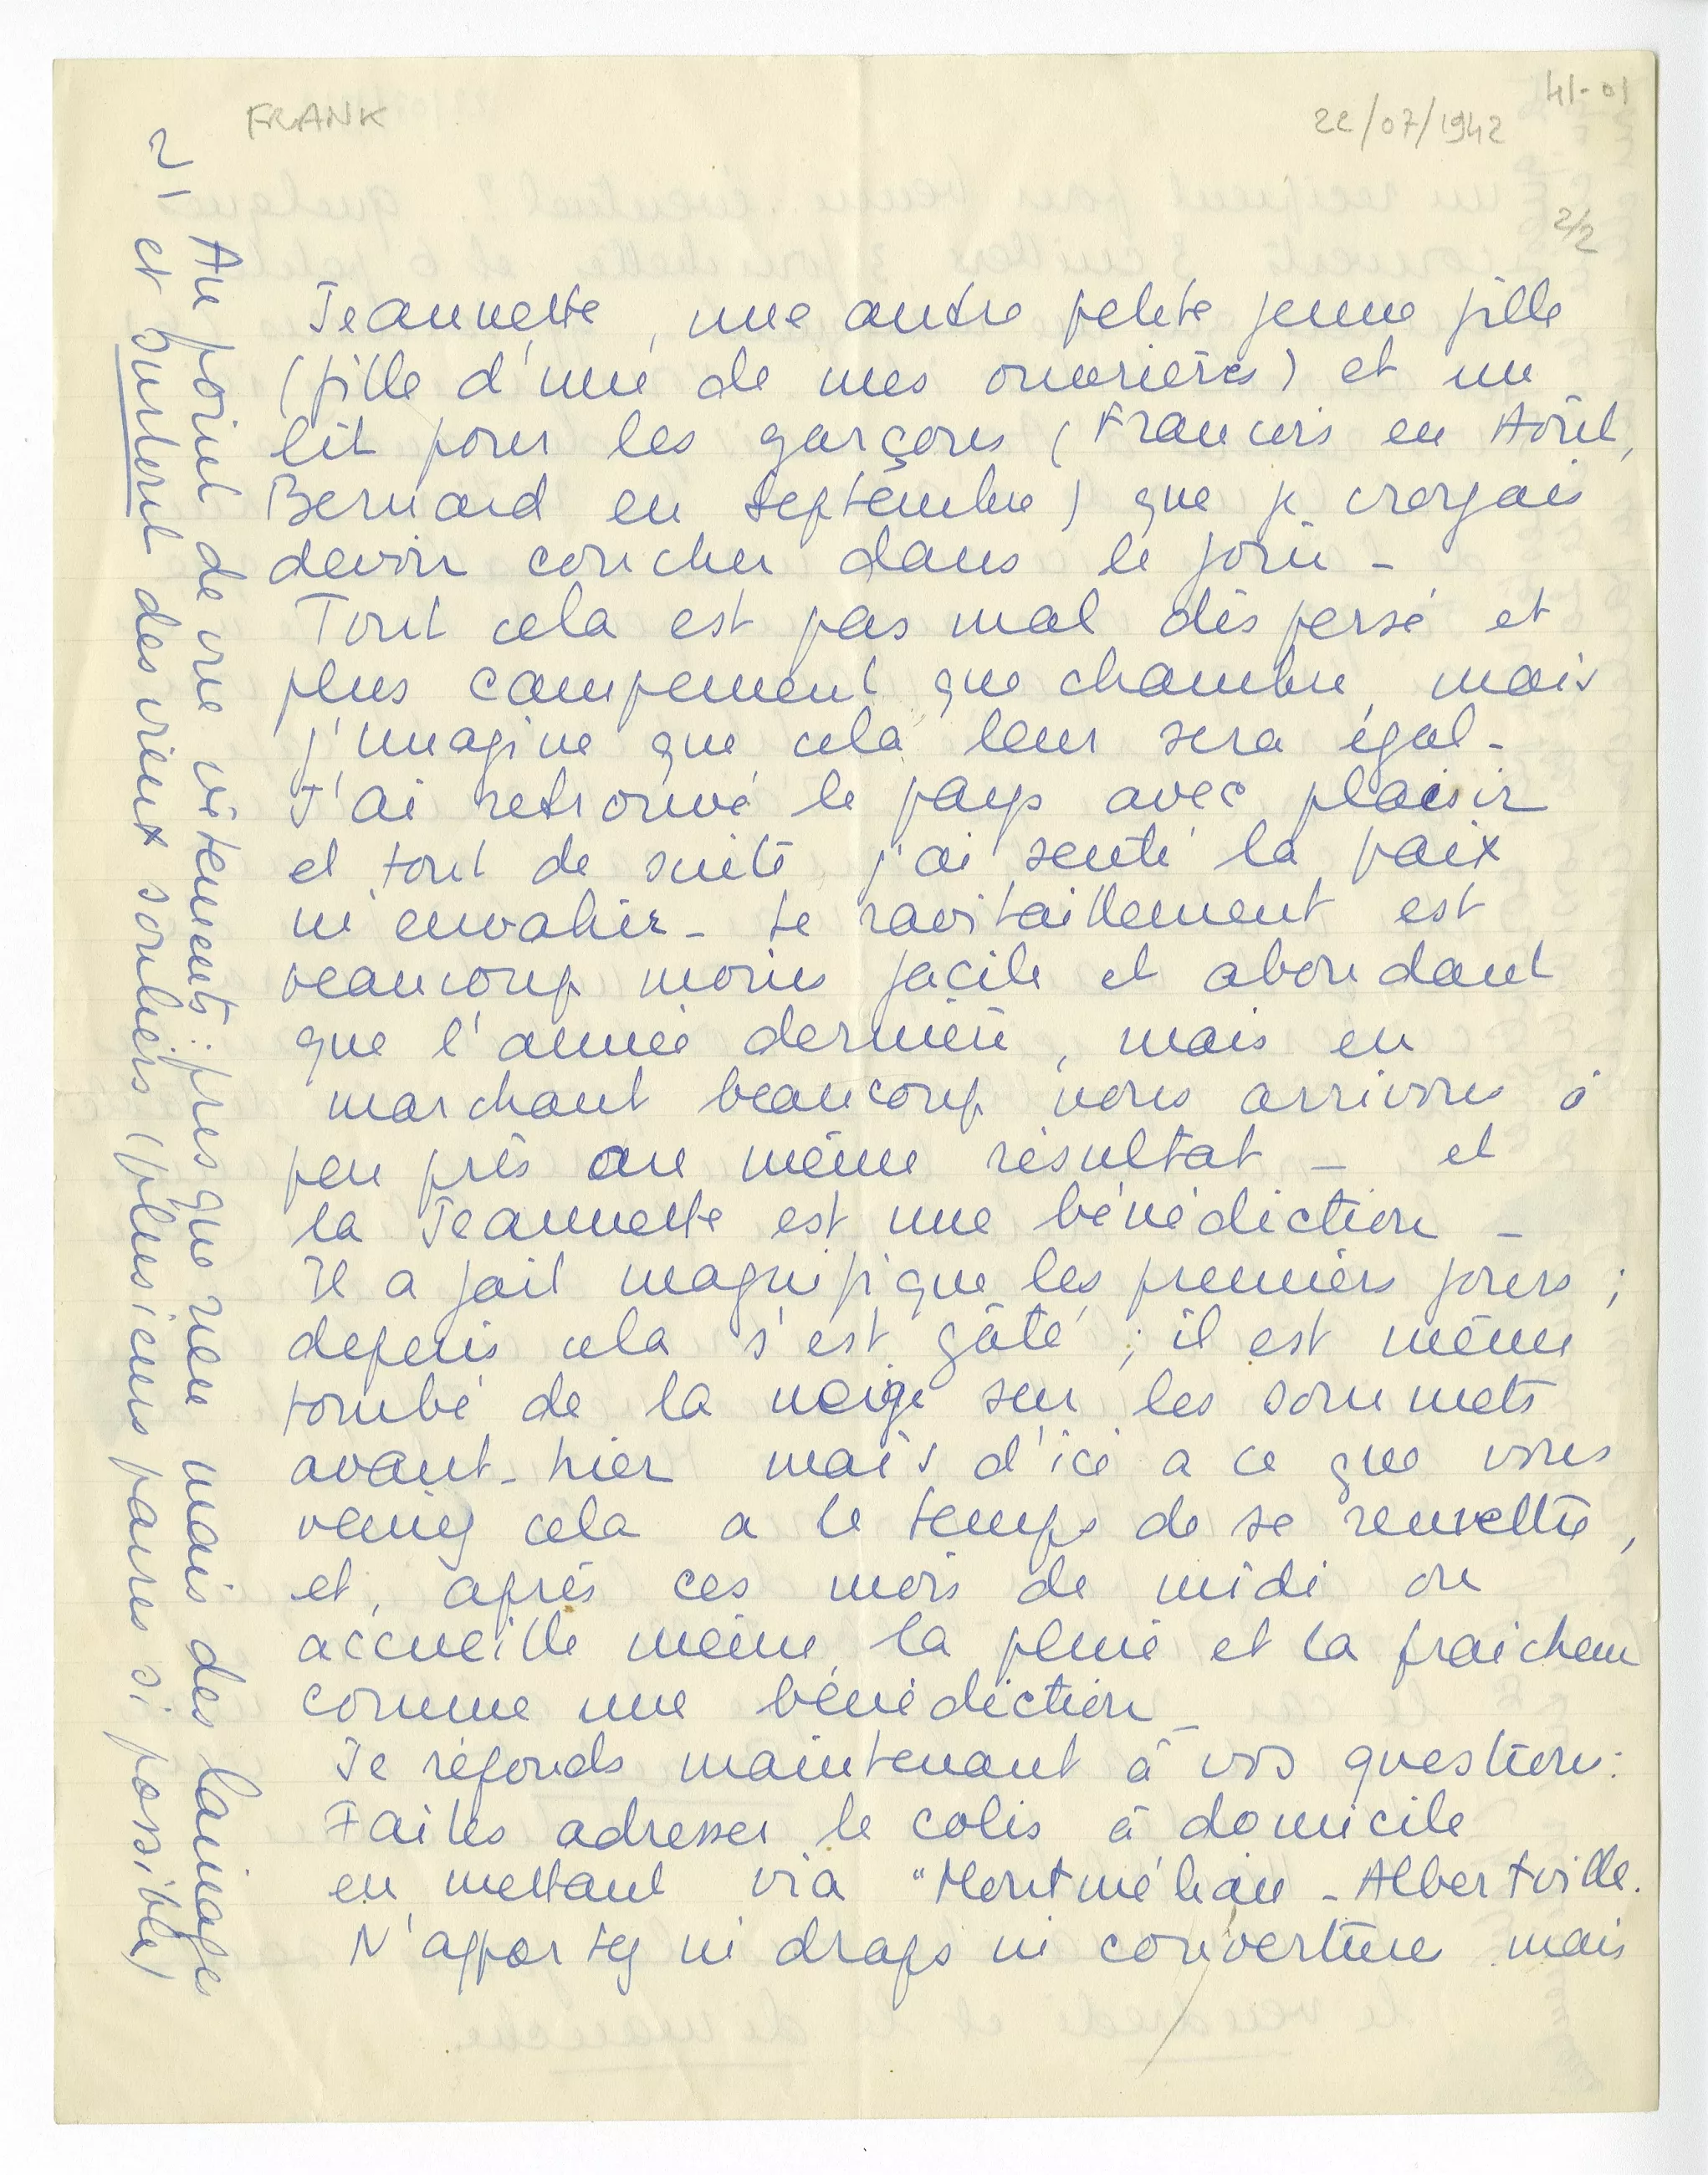 FRANK
22/07/1942
41-01
2/2
Jeannette, une autre petite jeune fille
(fille d'une de mes ouvrières) et un
lit pour les garçons (Francis en Août,
Bernard en septembre) que je croyais
devoir coucher dans le foin -
Tout cela est pas mal dispersé et
plus campement que chambre, mais
j'imagine que cela leur sera égal -
J'ai retrouvé le pays avec plaisir
et tout de suite j'ai senti la paix
m'envahir - Le ravitaillement est
beaucoup moins facile et abondant
que l'année dernière, mais en
marchant beaucoup nous arrivons à
peu près au même résultat - et
la Jeannette est une bénédiction -
Il a fait magnifique les premiers jours ;
depuis cela s'est gâté ; il est même
tombé de la neige sur les sommets
avant-hier mais d'ici a ce que vous
veniez cela a le temps de se remettre,
et, après ces mois de midi on
accueille même la pluie et la fraicheur
comme une bénédiction -
Je réponds maintenant à vos questions:
Faites adresser le colis à domicile
en mettant via "Montmélian - Albertville.
N'apportez ni draps ni couverture mais
2/
Au point de vue vêtements : presque rien mais des lainages
et surtout des vieux souliers (plusieurs paires si possible)